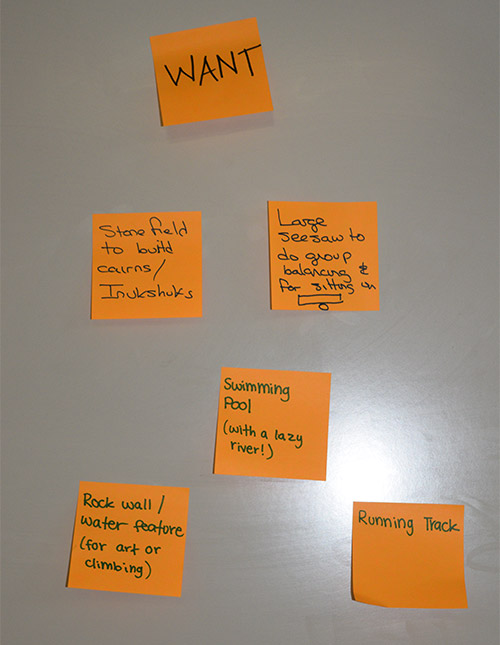 WANT
Stone field
to build
cairns/
Inukshuks
Large
seesaw to
do group
balancing &
for sitting on
Swimming
Pool
(with a lazy
river!)
Rock wall/
water feature
(for art or
climbing)
Running Track